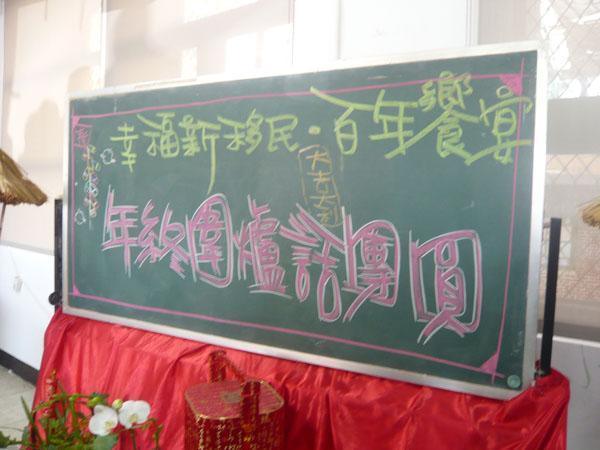 幸福新移民·百年饗宴
大吉大利
年終圍爐話團圓